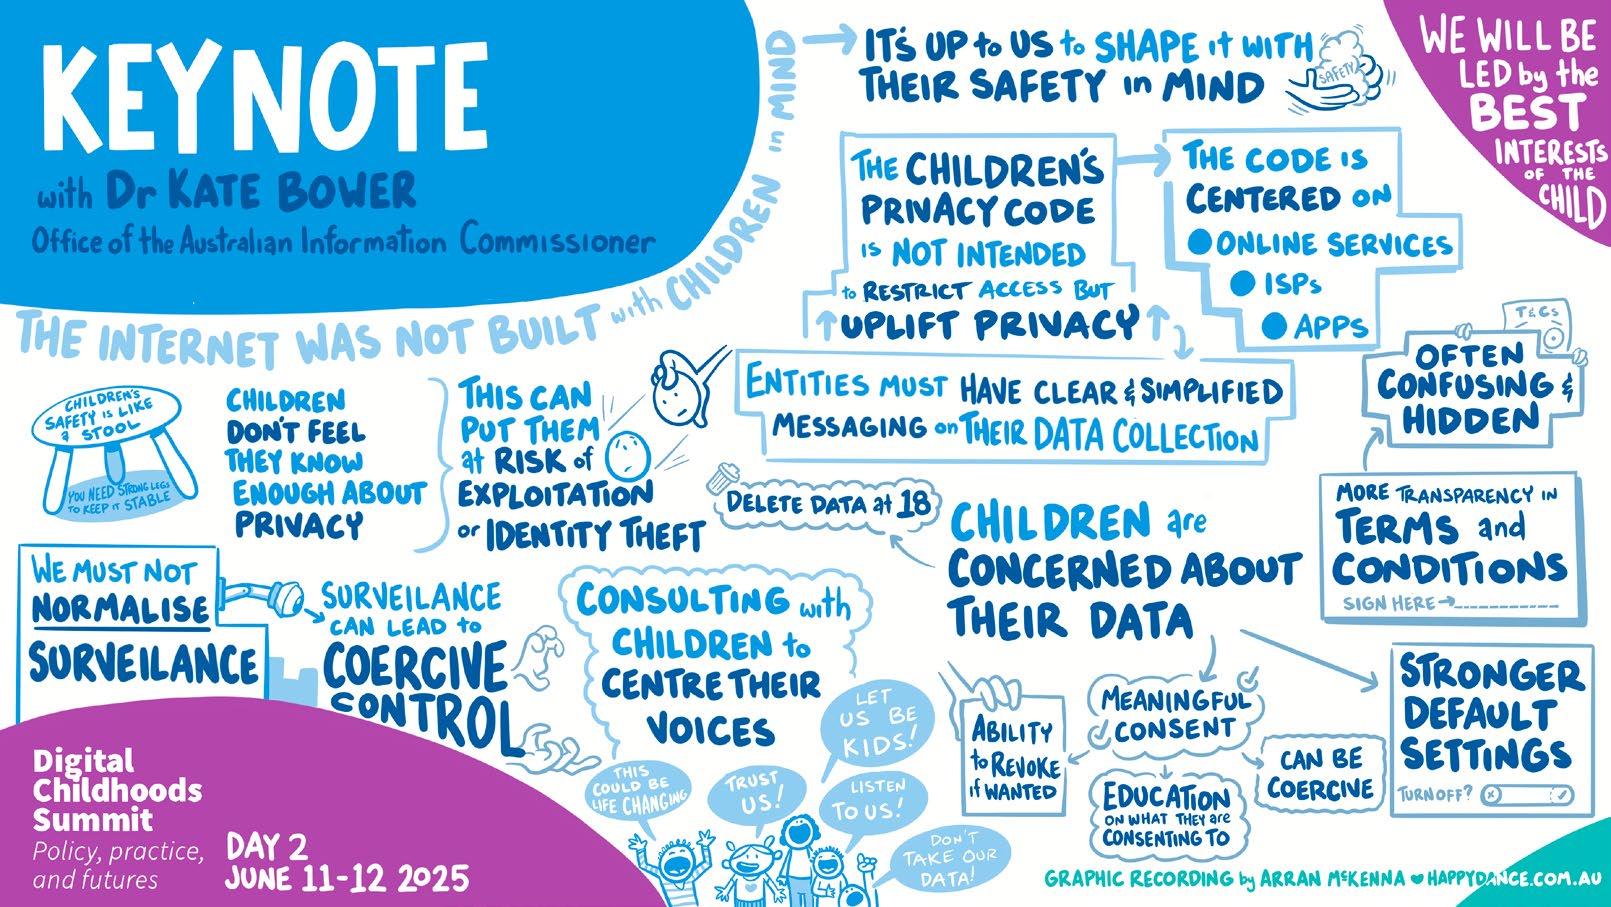 KEYNOTE
with Dr KATE BOWER
Office of the Australian Information Commissioner
THE INTERNET WAS NOT BUILT with CHILDREN in MIND
IT'S UP to US to SHAPE it WITH
THEIR SAFETY in MIND
SAFETY
WE WILL BE
LED by the
BEST
INTERESTS
OF THE
CHILD
THE CHILDREN'S
PRIVACY CODE
IS NOT INTENDED
to RESTRICT ACCESS BUT
UPLIFT PRIVACY
THE CODE IS
CENTERED ON
ONLINE SERVICES
ISPs
APPS
ENTITIES MUST HAVE CLEAR & SIMPLIFIED
MESSAGING on THEIR DATA COLLECTION
CHILDREN'S
SAFETY IS LIKE
A STOOL
YOU NEED STRONG LEGS
TO KEEP IT STABLE
CHILDREN
DON'T FEEL
THEY KNOW
ENOUGH ABOUT
PRIVACY
THIS CAN
PUT THEM
at RISK of
EXPLOITATION
or IDENTITY THEFT
WE MUST NOT
NORMALISE
SURVEILANCE
SURVEILANCE
CAN LEAD to
COERCIVE
CONTROL
CONSULTING with
CHILDREN to
CENTRE THEIR
VOICES
THIS
COULD BE
LIFE CHANGING
TRUST
US!
LET
US BE
KIDS!
LISTEN
TO US!
DON'T
TAKE OUR
DATA!
CHILDREN are
CONCERNED ABOUT
THEIR DATA
DELETE DATA at 18
MEANINGFUL
CONSENT
ABILITY
to REVOKE
if WANTED
EDUCATION
ON WHAT THEY are
CONSENTING TO
CAN BE
COERCIVE
T&Cs
OFTEN
CONFUSING &
HIDDEN
MORE TRANSPARENCY IN
TERMS and
CONDITIONS
SIGN HERE
STRONGER
DEFAULT
SETTINGS
TURN OFF?
Digital
Childhoods
Summit
Policy, practice,
and futures
DAY 2
JUNE 11-12 2025
GRAPHIC RECORDING by ARRAN McKENNA ♥ HAPPYDANCE.COM.AU